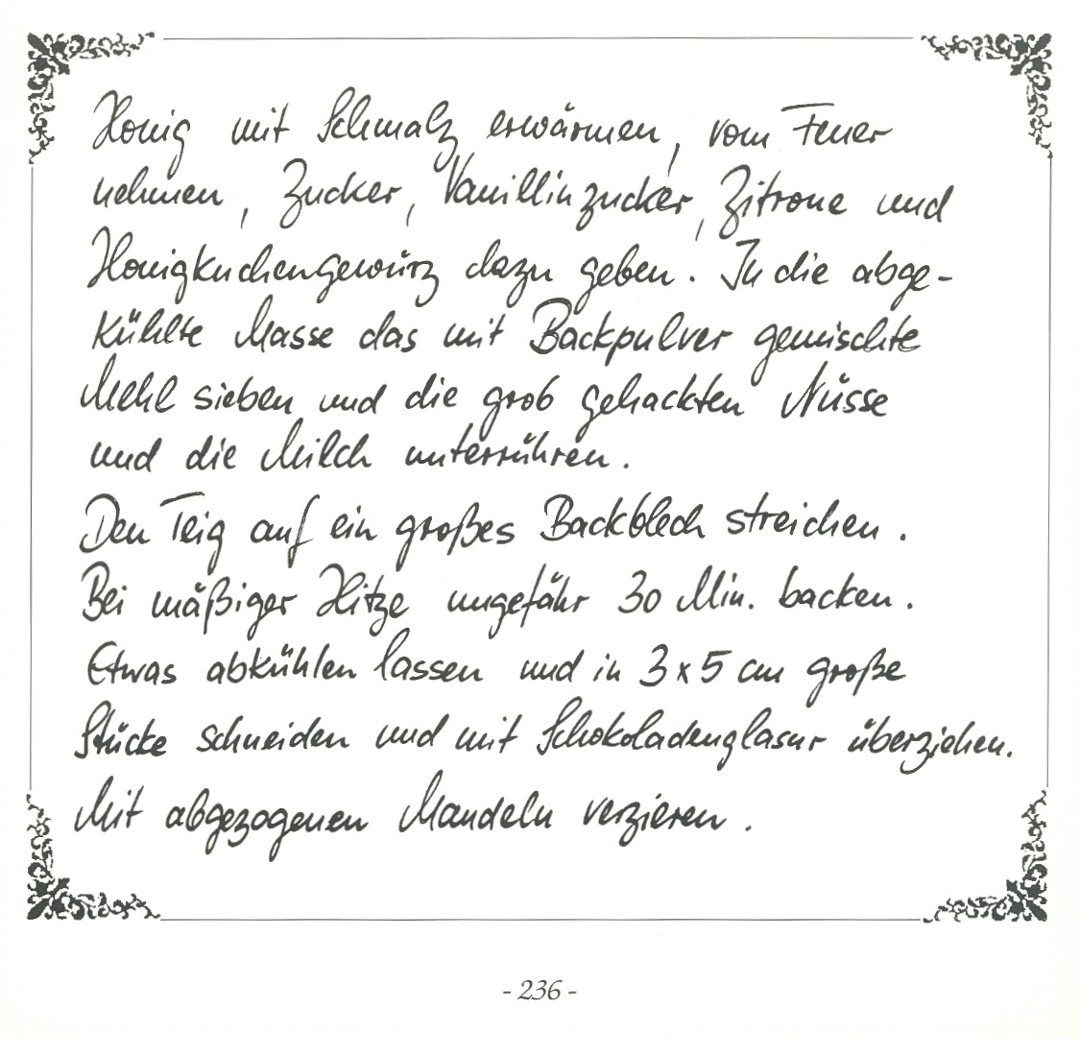 Honig mit Schmalz erwärmen, vom Feuer
nehmen, Zucker, Vanillinzucker, Zitrone und
Honigkuchengewürz dazu geben. In die abge-
kühlte Masse das mit Backpulver gemischte
Mehl sieben und die grob gehackten Nüsse
und die Milch unterrühren.
Den Teig auf ein großes Backblech streichen.
Bei mäßiger Hitze ungefähr 30 Min. backen.
Etwas abkühlen lassen und in 3 x 5 cm große
Stücke schneiden und mit Schokoladenglasur überziehen.
Mit abgezogenen Mandeln verzieren.
- 236 -